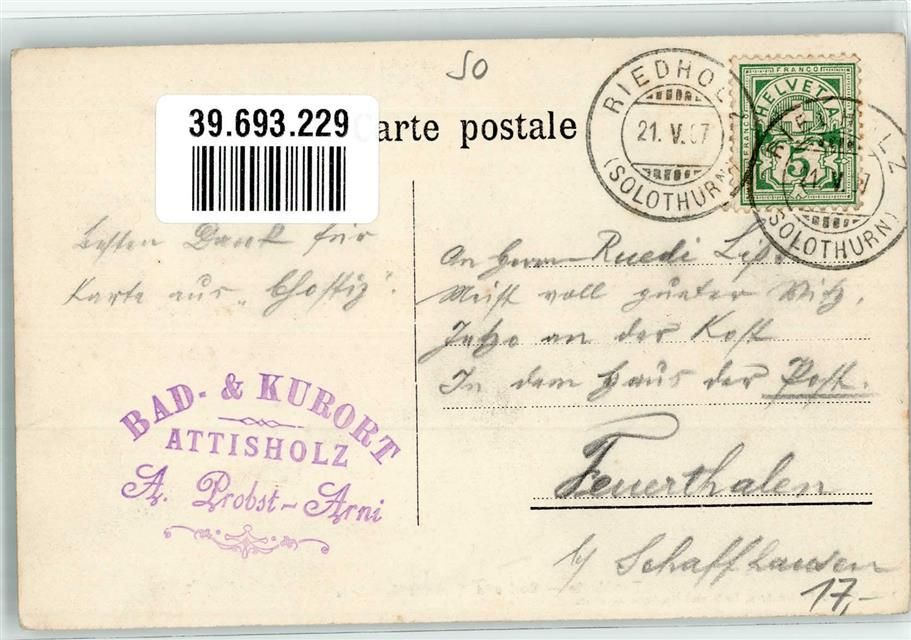 50
39.693.229
Carte postale
RIEDHOLZ
21. V. 07
(SOLOTHURN)
FRANCO
HELVETIA
FRANCO
5
RIEDHOLZ
21. V. 07
(SOLOTHURN)
Besten Dank für
Karte aus „Chostiz“.
BAD- & KURORT
ATTISHOLZ
A. Probst-Arni
An Herrn Ruedi
Meist voll gueter Witz,
Jetzo an der Kost
In dem Haus der Post.
Feuerthalen
b/ Schaffhausen
17,-